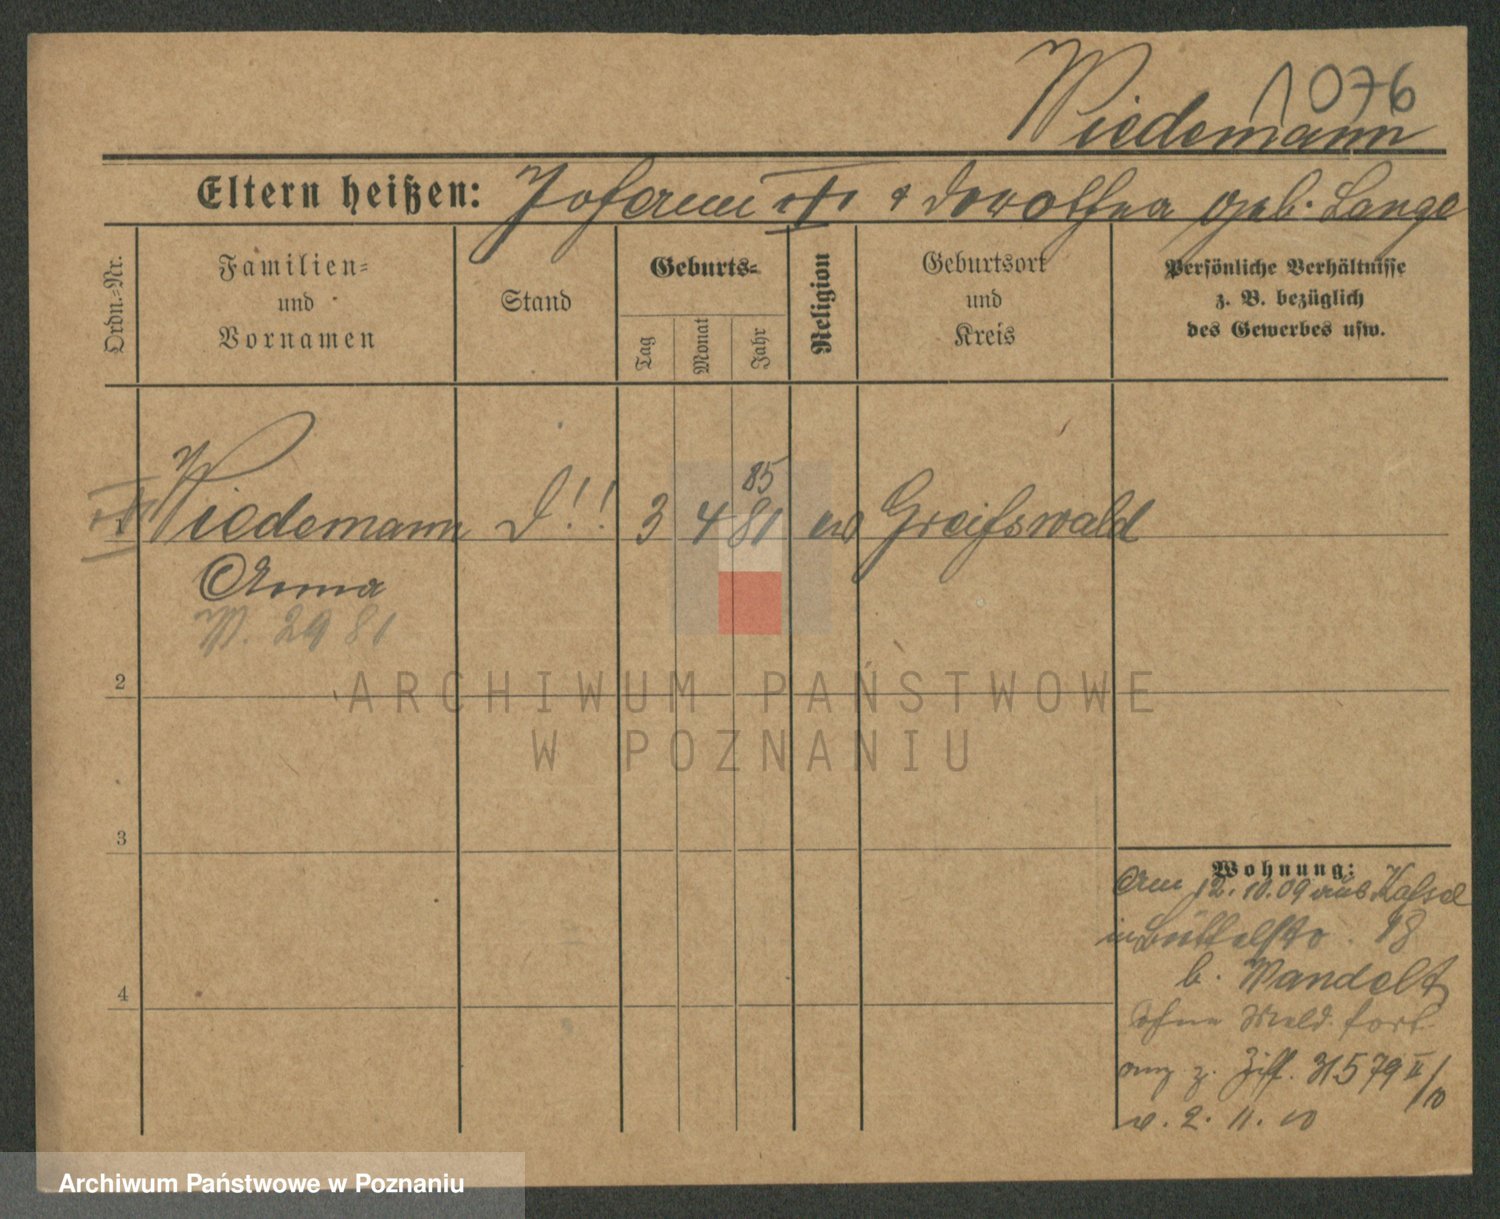 1076
Wiedemann
Eltern heißen: Johann & Dorothea geb. Lange
Ordn.-Nr.
Familien-
und
Vornamen
Stand
Geburts-
Tag
Monat
Jahr
Religion
Geburtsort
und
Kreis
Persönliche Verhältnisse
z. B. bezüglich
des Gewerbes usw.
85
1 Wiedemann D!! 3 4 81 ev Greifswald
Anna
W. 29 81
2
ARCHIWUM PAŃSTWOWE
W POZNANIU
3
Wohnung:
Am 12.10.09 aus Kassel
in Büttelstr. 18
b. Wandelt
Ohne Meld. fort
z. Ziff. 31579 II/10
v. 2. 11. 10
4
Archiwum Państwowe w Poznaniu